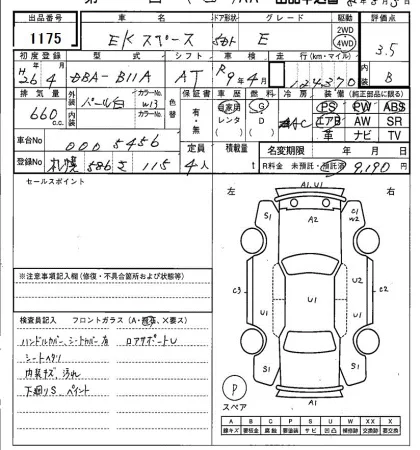 出品番号 車名 ドア形状 グレード 駆動 評価点
1175 EKスペース 5ドア E 2WD 4WD 3.5
初度登録 型式 シフト 車検 走行(km・マイル) 内装
H26年4月 DBA-B11A AT R9年4月 124,370 B
排気量 外装 カラーNo. 色替 保証書 車歴 燃料 冷房 装備(純正部品に限る)
660c.c. パール白 W13 有・無 自家用 G AAC PS PW ABS
内装 カラーNo. レンタ D エアB AW SR
( ) ( ) 革 ナビ TV
車台No 0005456 定員 積載量 名変期限 年 月 日
登録No 札幌 586 さ 115 4人 t R料金 未預託・預託済 9,190円
セールスポイント
左 右
A1.U1
S1 A2 C1 W2
C3 U1 U1 U2 C2
U1
S1 S1
P
スペア
A1
※注意事項記入欄(修復・不具合箇所および状態等)
検査員記入 フロントガラス(A・飛石、×要ス)
ハンドルカバー、シートカバー有 ロアサポートU
シートヘタリ
内装キズ、汚れ
下廻りS ペイント
A B C P S U W X XX
線キズ 要板金 腐食 要塗装 サビ 凹凸 補修跡 要交換 交換済